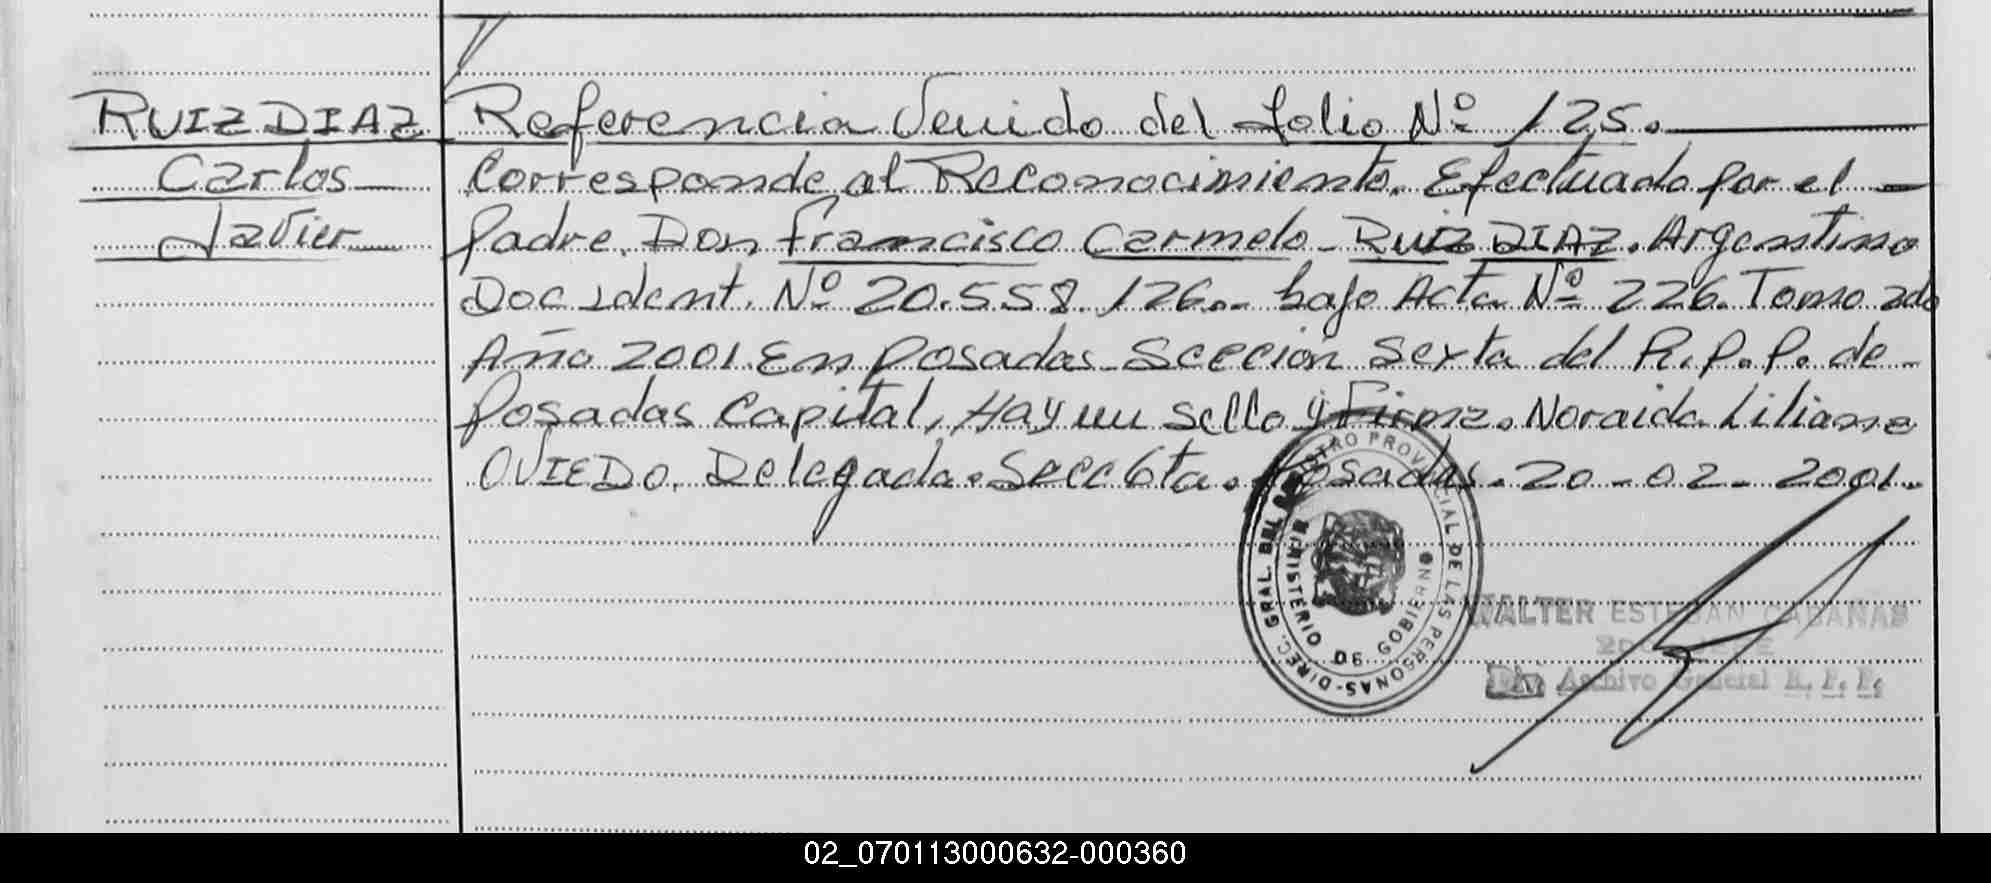 RUIZ DIAZ
Carlos
Javier
Referencia Venido del folio Nº 125.
Corresponde al Reconocimiento. Efectuado por el
padre. Don Francisco Carmelo RUIZ DIAZ. Argentino
Doc Ident. Nº 20.558.126.- bajo Acta Nº 226. Tomo 2do
Año 2001. En Posadas Sección Sexta del R.P.P. de
Posadas Capital, Hay un sello y Firma. Noraida Liliana
OVIEDO. Delegada. Secc 6ta. Posadas. 20-02-2001.
DIREC. GRAL. DEL REGISTRO PROVINCIAL DE LAS PERSONAS-
MINISTERIO DE GOBIERNO
WALTER ESTEBAN CABAÑAS
Div. Archivo General R. P. P.
02_070113000632-000360